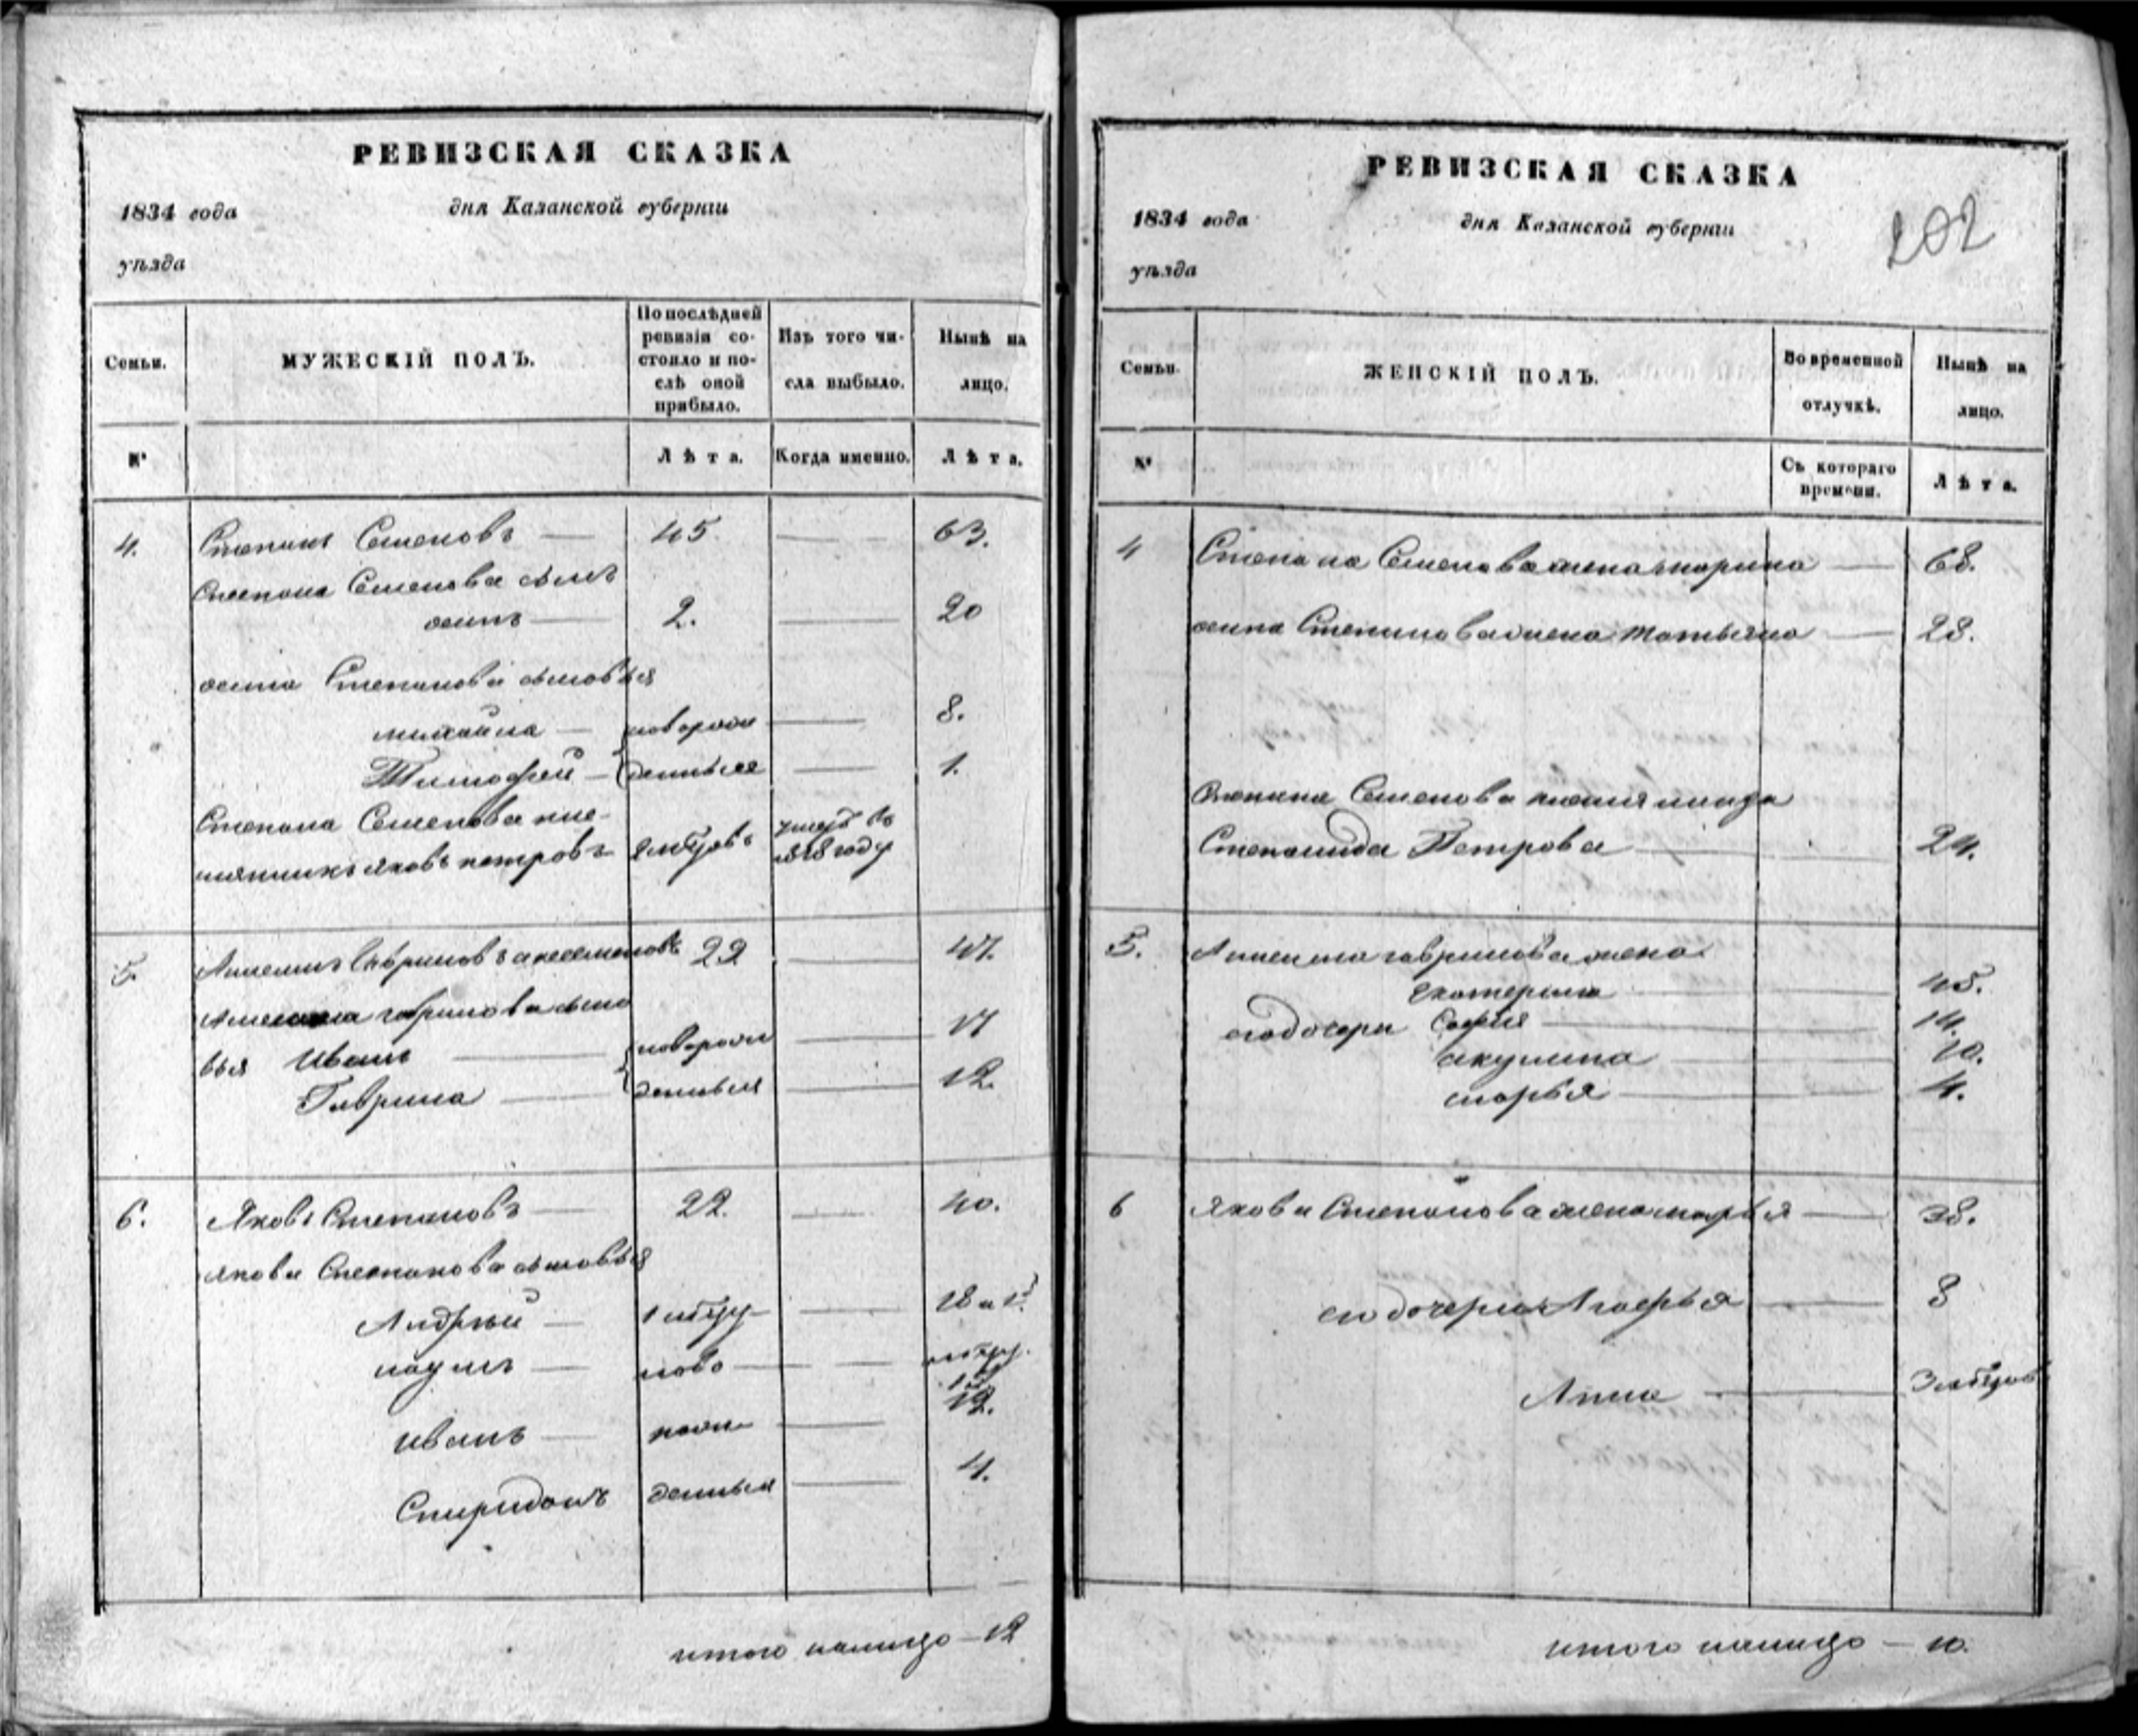 РЕВИЗСКАЯ СКАЗКА
1834 года
дня Казанской губерніи
уѣзда
Семьи.
МУЖЕСКІЙ ПОЛЪ.
По послѣдней
ревизіи со-
стояло и по-
слѣ оной
прибыло.
Изъ того чи-
сла выбыло.
Нынѣ на
лицо.
№
Лѣта.
Когда именно.
Лѣта.
4. Степанъ Семеновъ — 45. — 63.
Степана Семенова сынъ
осипъ — 2. — 20
осипа Степанова сыновья
михайла — новорож — 8.
Тимофей — денныя — 1.
Степана Семенова пле-
мянникъ яковъ петровъ
умеръ въ
1818 году
5 Гавриловъ 22 — 47.
гаврилова сыно
вья Иванъ — новорож — 17
Гаврила — денныя — 12.
6. Яковъ Степановъ — 22. — 40.
якова Степанова сыновья
Андрѣй —
наумъ — ново —
иванъ — рож — 12.
Спиридонъ денныя — 4.
итого налицо — 12
РЕВИЗСКАЯ СКАЗКА
202
1834 года
дня Казанской губерніи
уѣзда
Семьи.
ЖЕНСКІЙ ПОЛЪ.
Во временной
отлучкѣ.
Нынѣ на
лицо.
№
Съ котораго
времени.
Лѣта.
4 Степана Семенова жена марина — 68.
осипа Степанова жена татьяна — 28.
Степана Семенова
Степанида Петрова — 24.
5. гаврилова жена
екатерина — 45.
его дочери София — 14.
акулина — 10.
марья — 4.
6 якова Степанова жена марья — 38.
его дочери Агафья — 8
Анна —
итого налицо — 10.